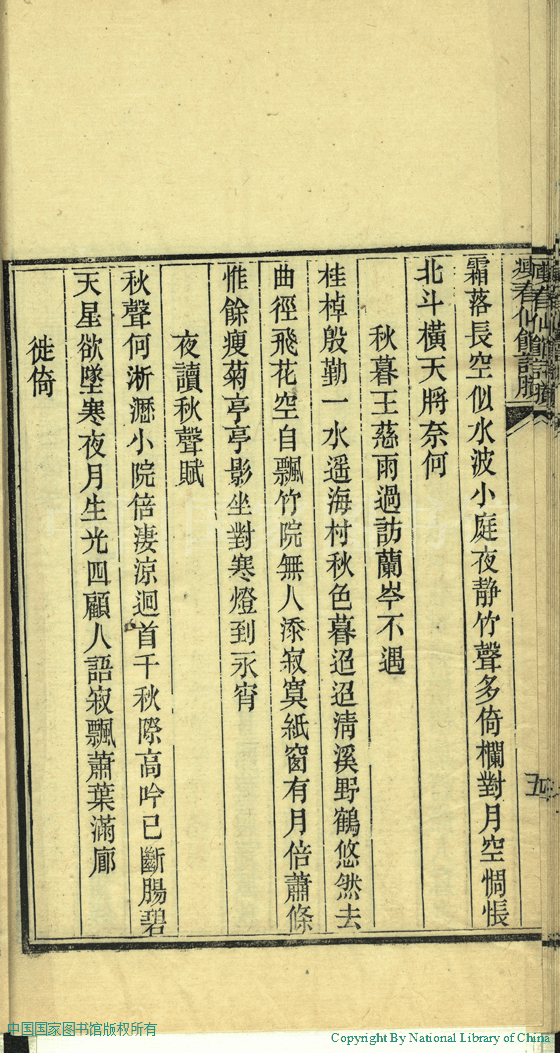 瘦春仙館詩賸
五
霜落長空似水波小庭夜靜竹聲多倚欄對月空惆悵
北斗橫天將奈何
秋暮王慈雨過訪蘭岑不遇
桂棹殷勤一水遥海村秋色暮迢迢淸溪野鶴悠然去
曲徑飛花空自飄竹院無人添寂寞紙窗有月倍蕭條
惟餘瘦菊亭亭影坐對寒燈到永宵
夜讀秋聲賦
秋聲何淅瀝小院倍淒涼迴首千秋際高吟已斷腸碧
天星欲墜寒夜月生光四顧人語寂飄蕭葉滿廊
徙倚
中国国家图书馆版权所有
Copyright By National Library of China